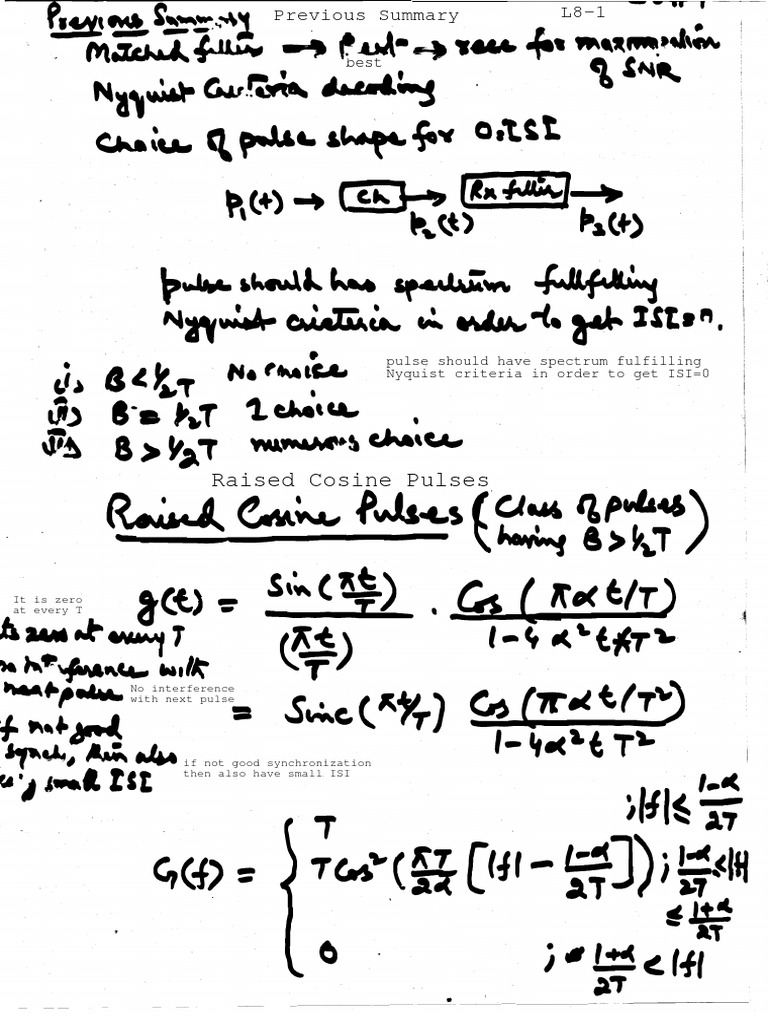 Previous Summary
Previous Summary
L8-1
Matched filter → best → rece for maxmisation
best
of SNR
Nyquist Criteria decoding
Choice of pulse shape for 0:ISI
p₁(t) → Ch → Rx filter →
p₂(t) p₃(t)
pulse should has spectrum fullfilling
Nyquist criateria in order to get ISI=0.
pulse should have spectrum fulfilling
Nyquist criteria in order to get ISI=0
(i) B < 1/2T No choice
(ii) B = 1/2T 1 choice
(iii) B > 1/2T numerous choice
Raised Cosine Pulses
Raised Cosine Pulses (Class of pulses
having B > 1/2T)
It is zero
at every T
g(t) = Sin(πt/T) / (πt/T) . Cos(παt/T) / 1-4α²t T²
ts zero at every T
no interference with
next pulse
No interference
with next pulse
= Sinc(πt/T) Cos(παt/T²) / 1-4α²t T²
if not good
synch, then also
small ISI
if not good synchronization
then also have small ISI
G(f) = {
T ; |f| ≤ 1-α/2T
T Cos² (πT/2α [|f| - 1-α/2T]) ; 1-α/2T < |f|
≤ 1+α/2T
0 ; 1+α/2T < |f|